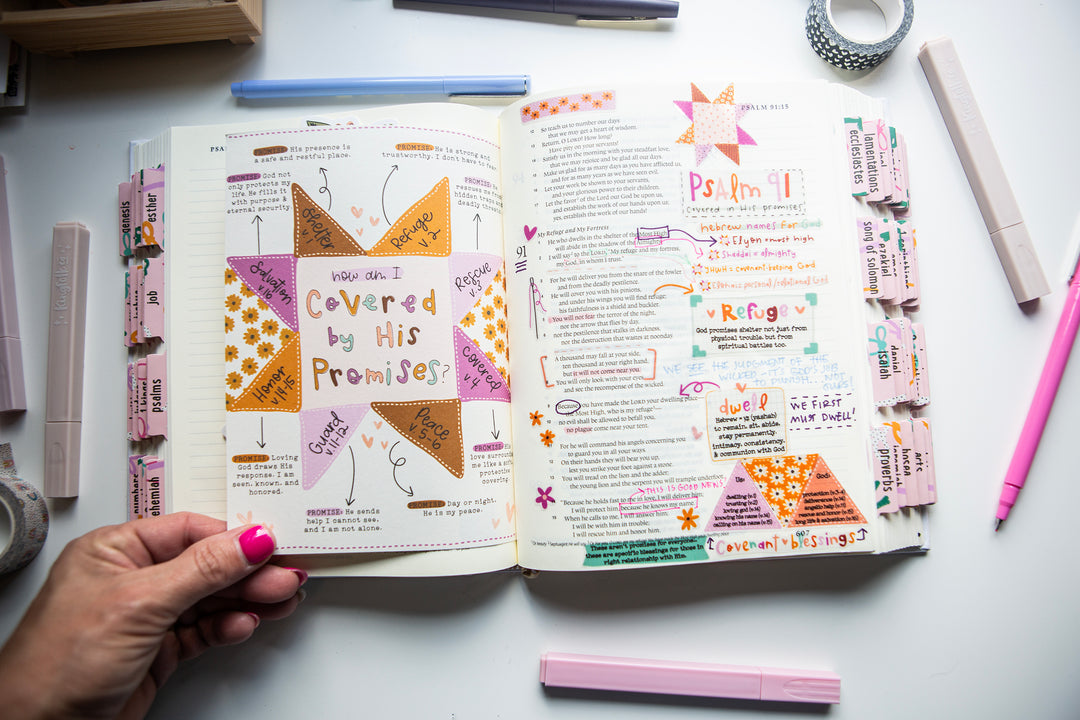 PROMISE: His presence is
a safe and restful place.
PROMISE: He is strong and
trustworthy. I don't have to fear.
PROMISE: God not
only protects my
life. He fills it
with purpose &
eternal security
PROMISE: He
rescues me from
hidden traps and
deadly threats
Shelter
v.1
Refuge
v.2
Salvation
v.16
Rescue
v.3
how am I
Covered
by His
Promises?
Honor
v.14-15
Covered
v.4
Guard
v.11-12
Peace
v.5-6
PROMISE: Loving
God draws His
response. I am
seen, known, and
honored.
PROMISE: He sends
help I cannot see,
and I am not alone.
PROMISE: Day or night,
He is my peace.
genesis
esther
job
psalms
nehemiah
PSALM 91:15
12 So teach us to number our days
that we may get a heart of wisdom.
13 Return, O LORD! How long?
Have pity on your servants!
14 Satisfy us in the morning with your steadfast love,
that we may rejoice and be glad all our days.
15 Make us glad for as many days as you have afflicted us,
and for as many years as we have seen evil.
16 Let your work be shown to your servants,
and your glorious power to their children.
17 Let the favor of the Lord our God be upon us,
and establish the work of our hands upon us;
yes, establish the work of our hands!
My Refuge and My Fortress
91
He who dwells in the shelter of the Most High
will abide in the shadow of the Almighty.
2 I will say to the LORD, "My refuge and my fortress,
my God, in whom I trust."
For he will deliver you from the snare of the fowler
and from the deadly pestilence.
He will cover you with his pinions,
and under his wings you will find refuge;
his faithfulness is a shield and buckler.
You will not fear the terror of the night,
nor the arrow that flies by day,
nor the pestilence that stalks in darkness,
nor the destruction that wastes at noonday.
A thousand may fall at your side,
ten thousand at your right hand,
but it will not come near you.
You will only look with your eyes
and see the recompense of the wicked.
Because you have made the LORD your dwelling place—
the Most High, who is my refuge—
no evil shall be allowed to befall you,
no plague come near your tent.
For he will command his angels concerning you
to guard you in all your ways.
On their hands they will bear you up,
lest you strike your foot against a stone.
You will tread on the lion and the adder;
the young lion and the serpent you will trample underfoot.
THIS IS GOD NOW
"Because he holds fast to me in love, I will deliver him;
I will protect him, because he knows my name.
When he calls to me, I will answer him;
I will be with him in trouble;
I will rescue him and honor him.
These aren't promises for everyone..
these are specific blessings for those in
right relationship with Him.
Psalm 91
covered in His promises
hebrew names for God
Elyon = most high
Shaddai = almighty
YHWH = covenant-keeping God
Elohim = personal/relational God
Refuge
God promises shelter not just from
physical trouble, but from
spiritual battles too.
WE SEE THE JUDGMENT OF THE
WICKED - ITS GOD'S JOB
TO PUNISH... NOT
OURS!
dwell
Hebrew = (yashab)
to remain, sit, abide,
stay permanently.
intimacy, consistency,
& communion with God
WE FIRST
MUST DWELL!
Us:
dwelling (v.1)
trusting (v.2)
loving god (v.14)
knowing his name (v.14)
calling on his name (v.15)
God:
protection (v.3)
607
Covenant blessings
ecclesiastes
lamentations
song of solomon
ezekiel
isaiah
daniel
proverbs
hosea
acts